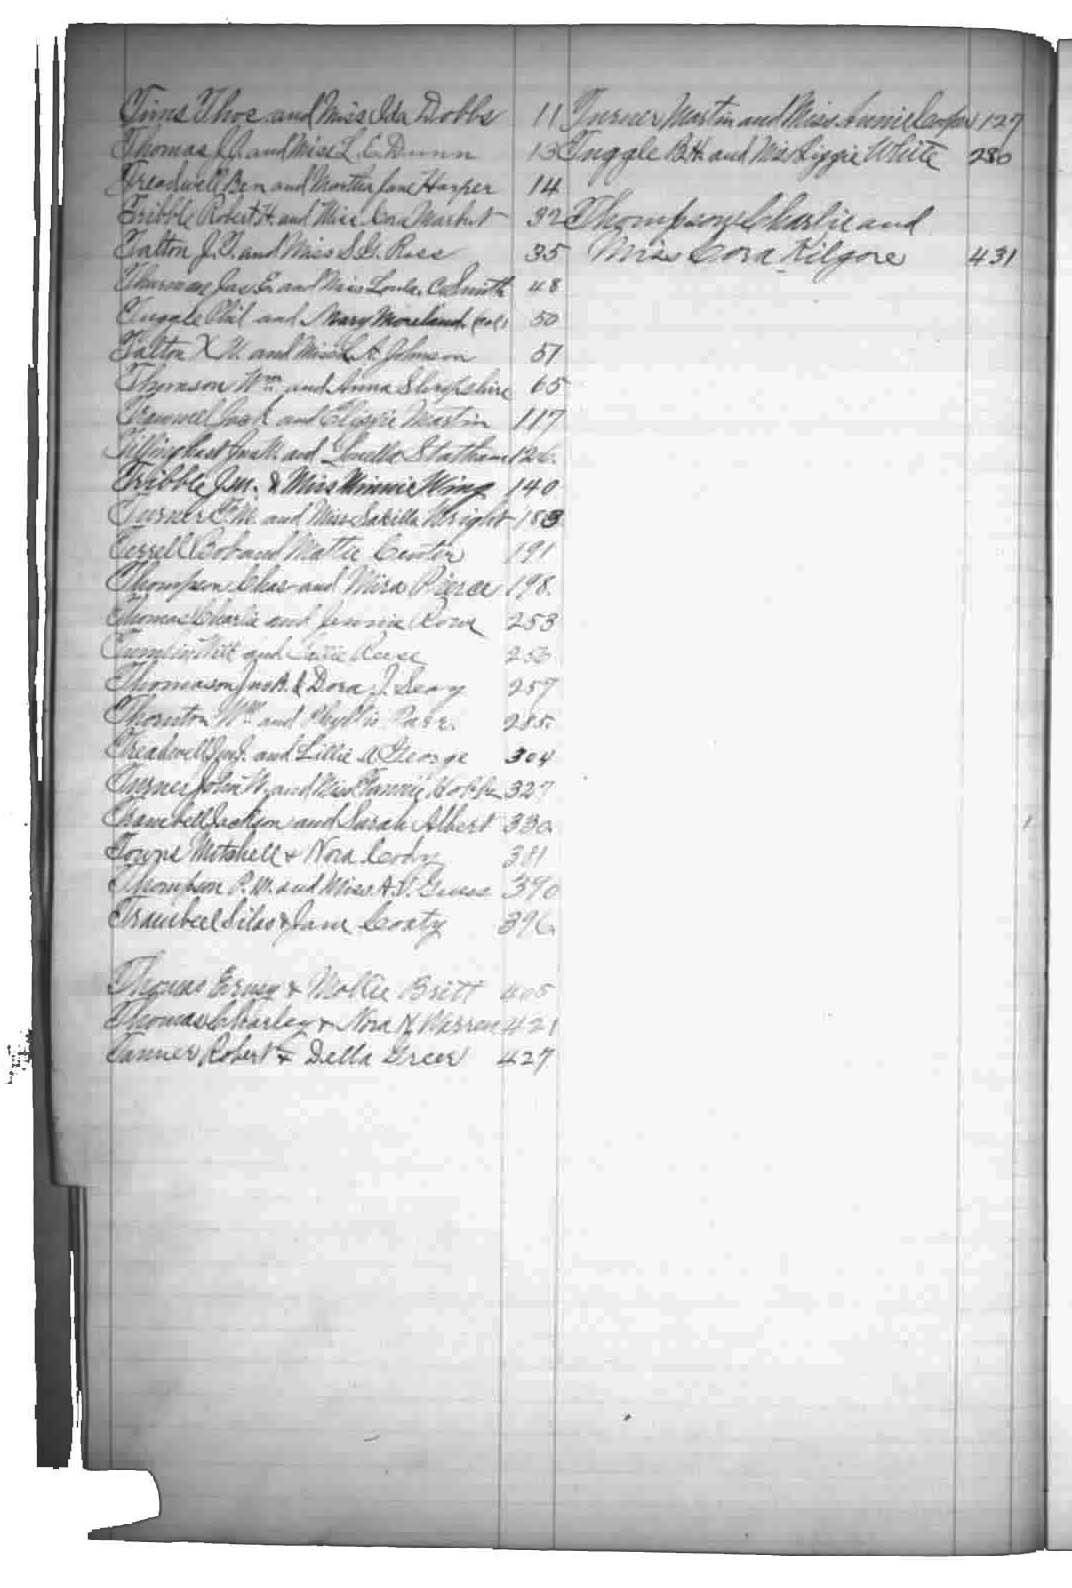 Tims Thos and Miss Ida Dobbs 11
Thomas J.J. and Miss L. E. Dunn 13
Treadwell Ben and Martha Jane Harper 14
Tribble Robert H. and Miss Cora Marbut 32
Talton J.T. and Miss S.G. Ross 35
Thurman Jas E. and Miss Loula. C. Smith 48
Tuggle Phil and Mary Moreland (col) 50
Talton and Miss A. Johnson 57
Thomson Wm and Anna Shropshire 65
Tramwell Jack and Martin 117
Tillinghast and Statham 126.
Tribble J.M. & Miss Minnie Wing 140
Turner F.M. and Miss Wright 183
Terrell Bob and Mattie 191
Thompson Chas and Mira Pierce 198.
Thomas Charlie and Jennie 253
and Callie Reese 256
Thomason Jno A. & Dora J. Seay 257
Thornton Wm and Phyllis Parr. 285.
Treadwell and Lillie A George 304
Turner John W. and Miss Fannie 327
Trambell Jackson and Sarah Albert 330.
Towns Mitchell & Nora Cody 381
Thompson P.M. and Miss A.V. Guess 390
Trambell Silas & Jane Coaty 396.
Thomas & Mollie Britt 405
Thomas Charley & Nora Warren 421
Tanner Robert & Della Greer 427
Turner Martin and Miss Annie Cooper 127
Tuggle B.H. and Miss Lizzie White 280
Thompson Charlie and
Miss Cora Kilgore 431